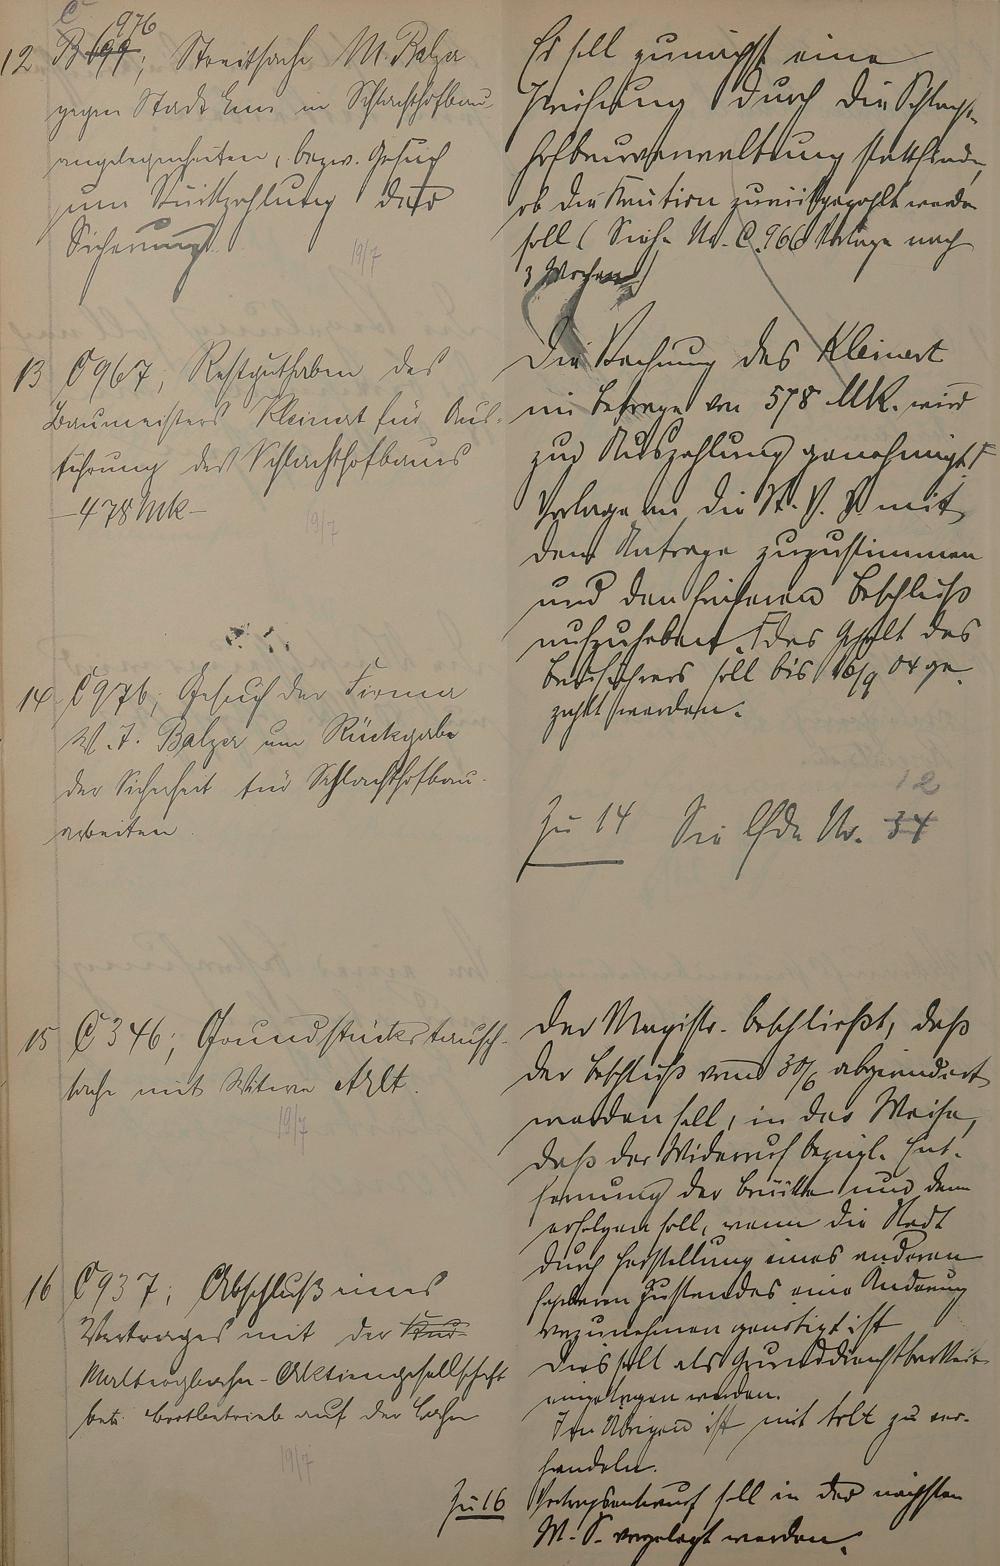 C 976
12 B 699; Streitsache M. Balzer
gegen Stadt Ems in Schlachthofbau-
angelegenheiten, bezw. Gesuch
um Rückzahlung der
Sicherung.
19/7
Es soll zunächst eine
Prüfung durch die Schlacht-
hofbauverwaltung stattfinden,
ob die Kaution zurückgezahlt werden
soll (Siehe No. C. 966 Vorlage nach
3 Wochen)
13 C 967; Restguthaben des
Baumeisters Kleinert für Aus-
führung des Schlachthofbaues
– 478 Mk –
19/7
Die Rechnung des Kleinert
im Betrage von 578 Mk. wird
zur Auszahlung genehmigt.
Vorlage an die St. V. V. mit
dem Antrage zuzustimmen
und den früheren Beschluß
aufzuheben. Das Gehalt des
Bauführers soll bis 16/9 04 ge-
zahlt werden.
14 C 976; Gesuch der Firma
W. F. Balzer um Rückgabe
der Sicherheit für Schlachthofbau-
arbeiten.
12
Zu 14 Sie lfde No. 34
15 C 346; Grundstückstausch-
sache mit Witwe Arlt.
19/7
Der Magistr. beschließt, daß
der Beschluß vom 30/6 abgeändert
werden soll, in der Weise,
daß der Widerruf bezügl. Ent-
fernung der Brücke nur dann
erfolgen soll, wenn die Stadt
durch Herstellung eines anderen
Zustandes eine Änderung
vorzunehmen genötigt ist
Dies soll als Grunddienstbarkeit
eingetragen werden.
Im Übrigen ist mit Arlt zu ver-
handeln.
16 C 937; Abschluß eines
Vertrages mit der
Aktiengesellschaft
betr. betrieb auf der Bahn
19/7
Zu 16 Vertragsentwurf soll in der nächsten
M. S. vorgelegt werden.